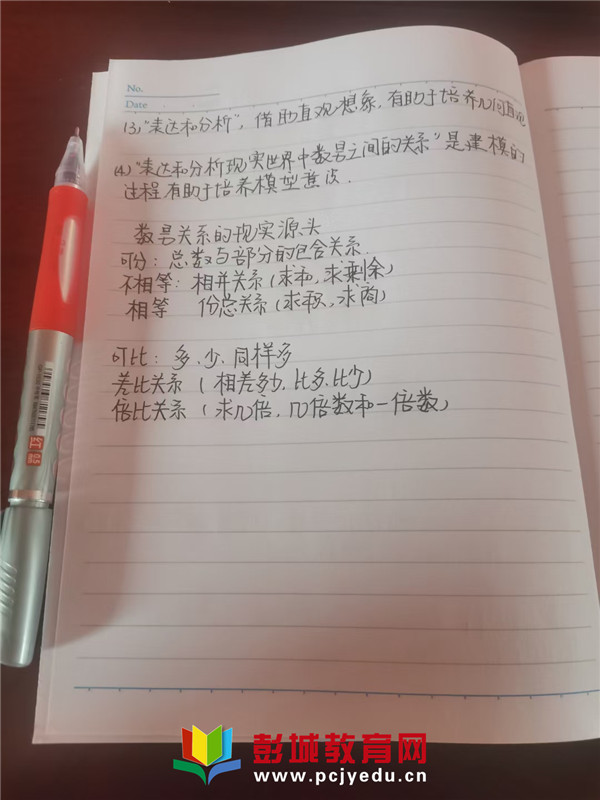 No.
Date
(3)"表达和分析",借助直观想象,有助于培养几何直观
(4)"表达和分析现实世界中数量之间的关系"是建模的
过程有助于培养模型意识.
数量关系的现实源头
可分:总数与部分的包含关系.
不相等:相并关系(求和,求剩余)
相等 份总关系(求积,求商)
可比:多、少、同样多
差比关系(相差多少,比多、比少)
倍比关系(求几倍,几倍数和一倍数)
彭城教育网
www.pcjyedu.cn